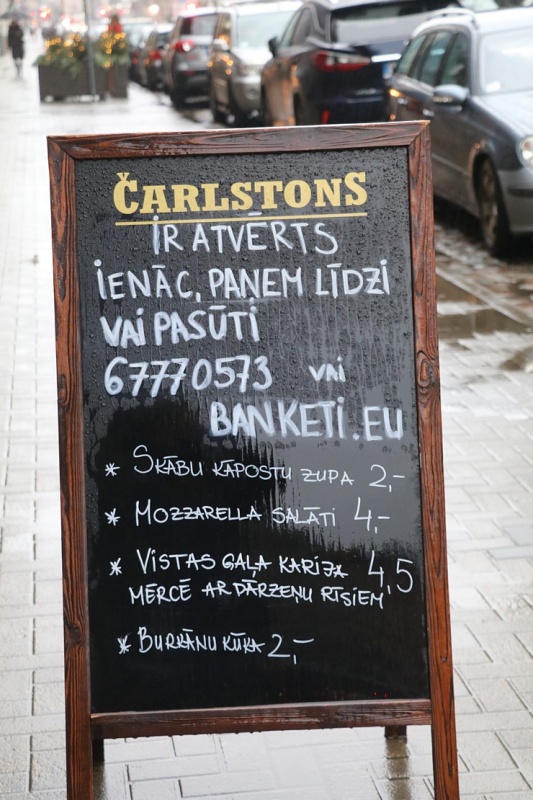 ČARLSTONS
IR ATVĒRTS
IENĀC, PAŅEM LĪDZI
VAI PASŪTI
67770573 VAI
BANKETI.EU
* SKĀBU KĀPOSTU ZUPA 2,-
* MOZZARELLA SALĀTI 4,-
* VISTAS GAĻA KARIJA 4,5
MĒRCĒ AR DĀRZEŅU RĪSIEM
* BURKĀNU KŪKA 2,-